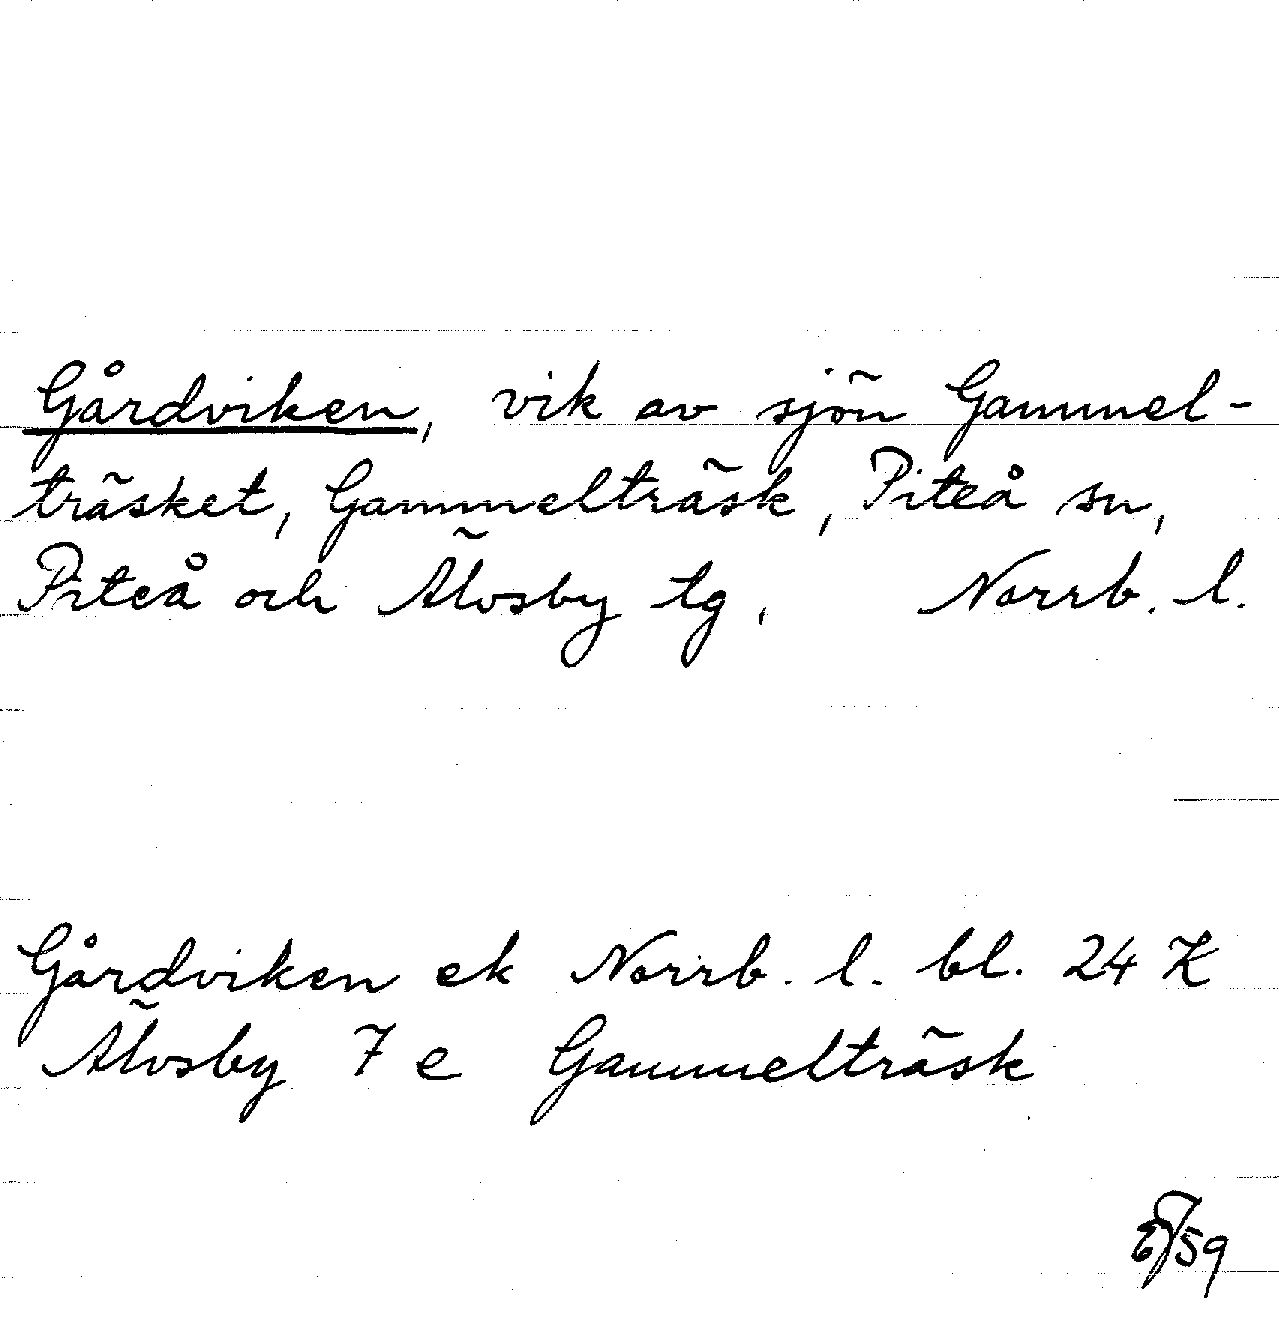 Gårdviken, vik av sjön Gammel-
träsket, Gammelträsk, Piteå sn,
Piteå och Älvsby tg, Norrb. l.
Gårdviken ek Norrb. l. bl. 24 K
Älvsby 7 e Gammelträsk
59